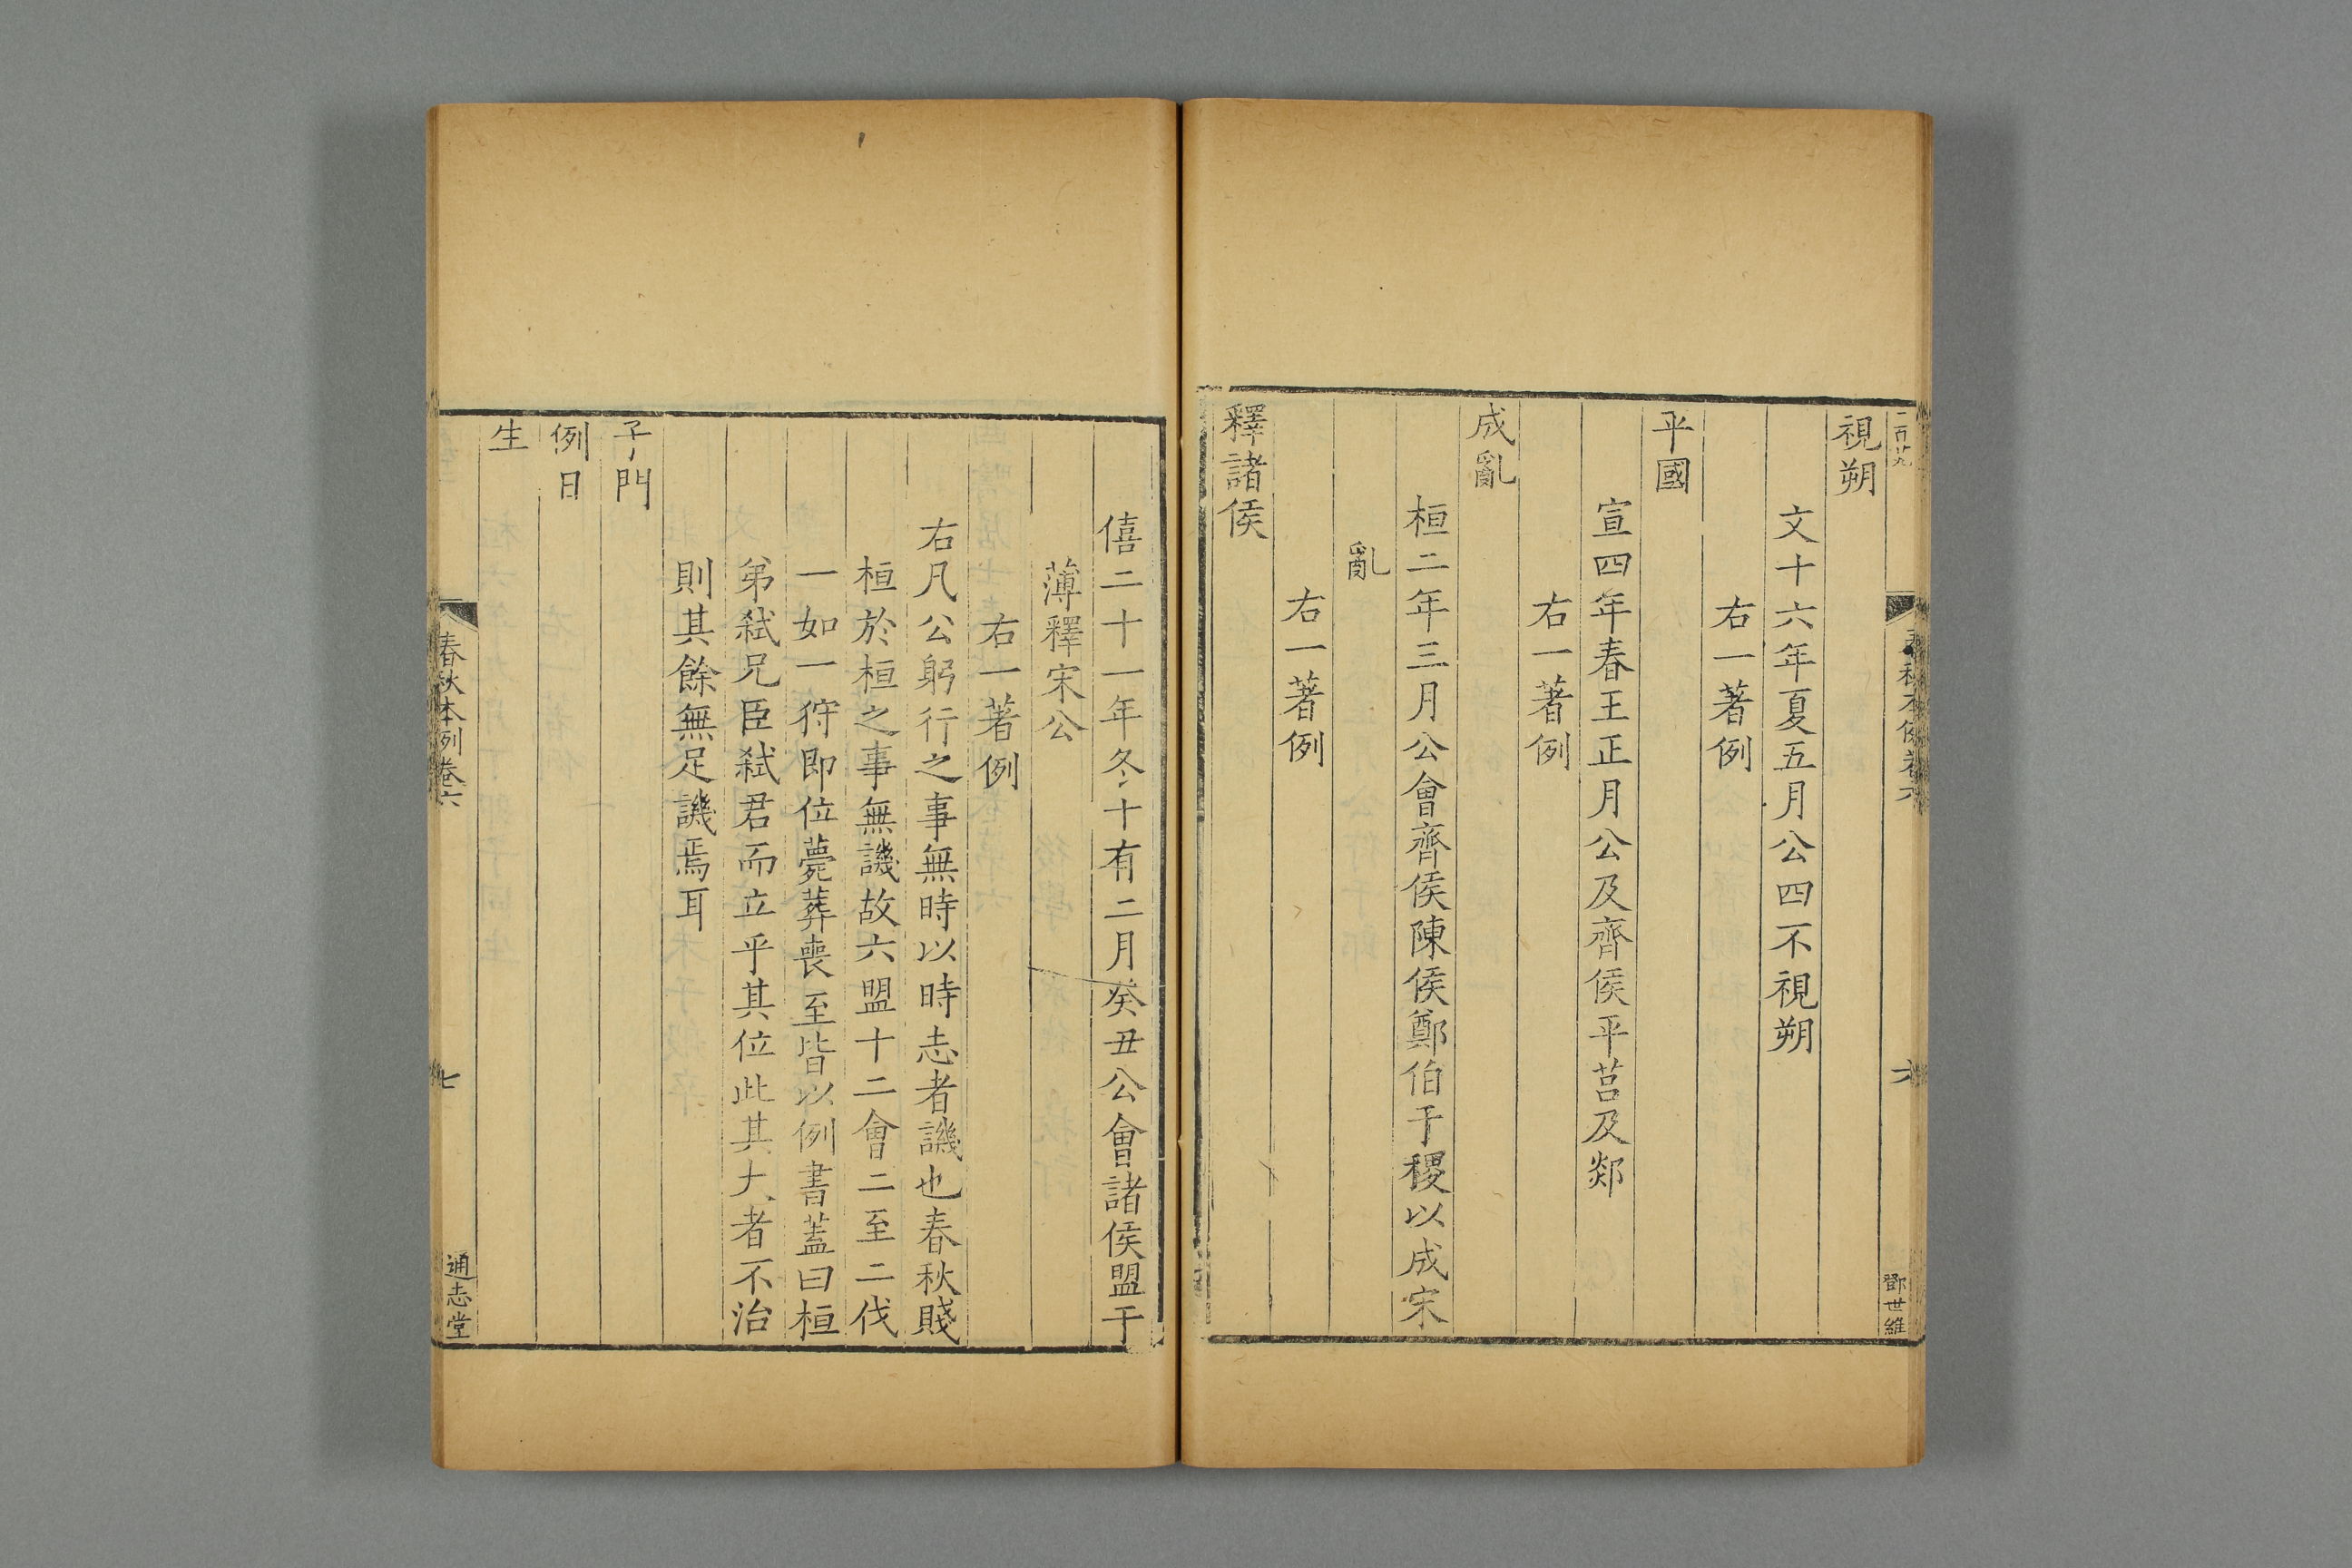 二百廿九
春秋本例卷六
六
鄧世維
視朔
文十六年夏五月公四不視朔
右一著例
平國
宣四年春王正月公及齊侯平莒及郯
右一著例
成亂
桓二年三月公會齊侯陳侯鄭伯于稷以成宋
亂
右一著例
釋諸侯
僖二十一年冬十有二月癸丑公會諸侯盟于
薄釋宋公
右一著例
右凡公躬行之事無時以時志者譏也春秋賤
桓於桓之事無譏故六盟十二會二至二伐
一如一狩即位薨葬喪至皆以例書蓋曰桓
弟弑兄臣弑君而立乎其位此其大者不治
則其餘無足譏焉耳
子門
例日
生
春秋本例卷六
七
通志堂